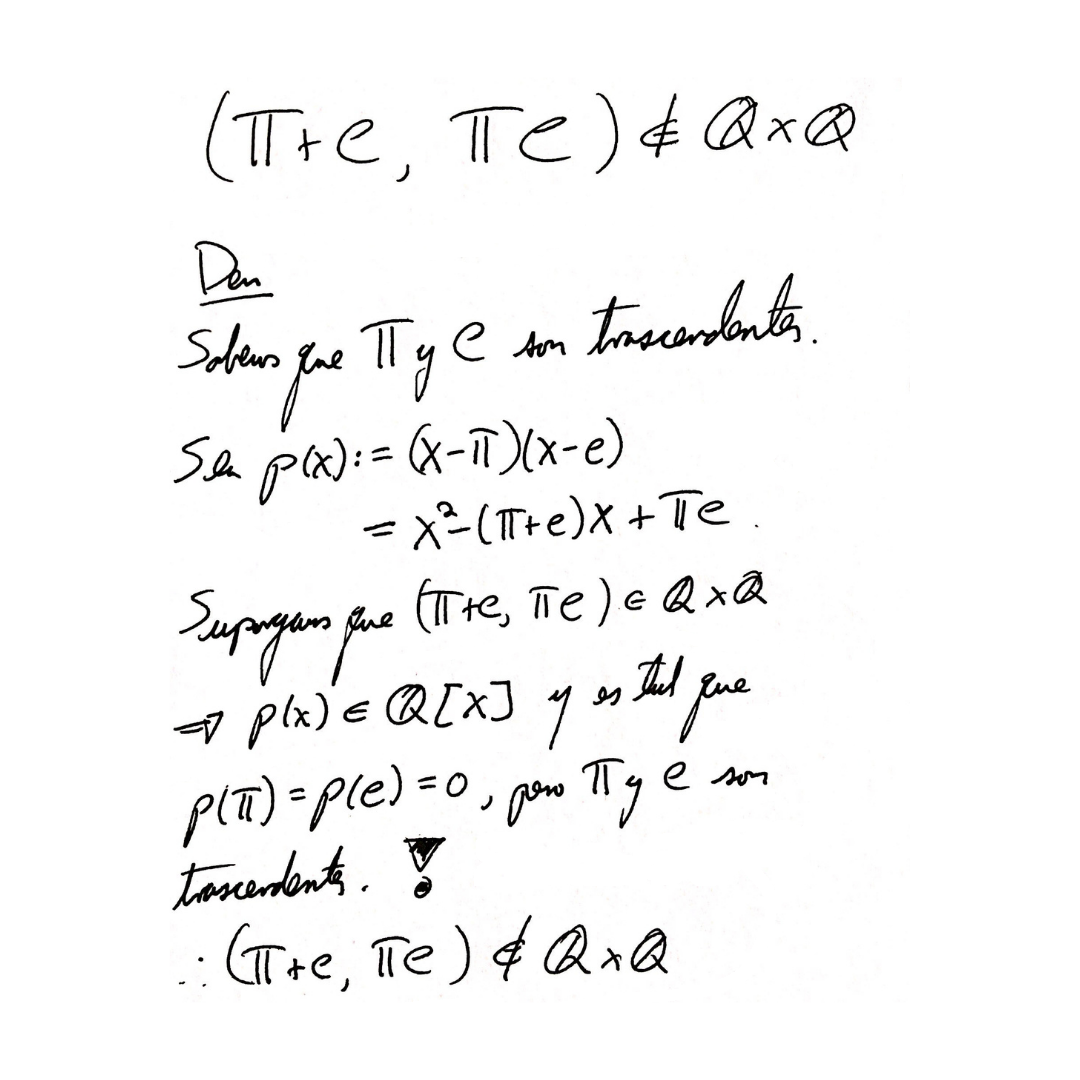 (π+e, πe) ∉ ℚ×ℚ
Dem
Sabemos que π y e son trascendentes.
Sea p(x):= (x-π)(x-e)
= x²-(π+e)x + πe.
Supongamos que (π+e, πe) ∈ ℚ×ℚ
⇒ p(x) ∈ ℚ[x] y es tal que
p(π) = p(e) = 0, pero π y e son
trascendentes. !
∴ (π+e, πe) ∉ ℚ×ℚ